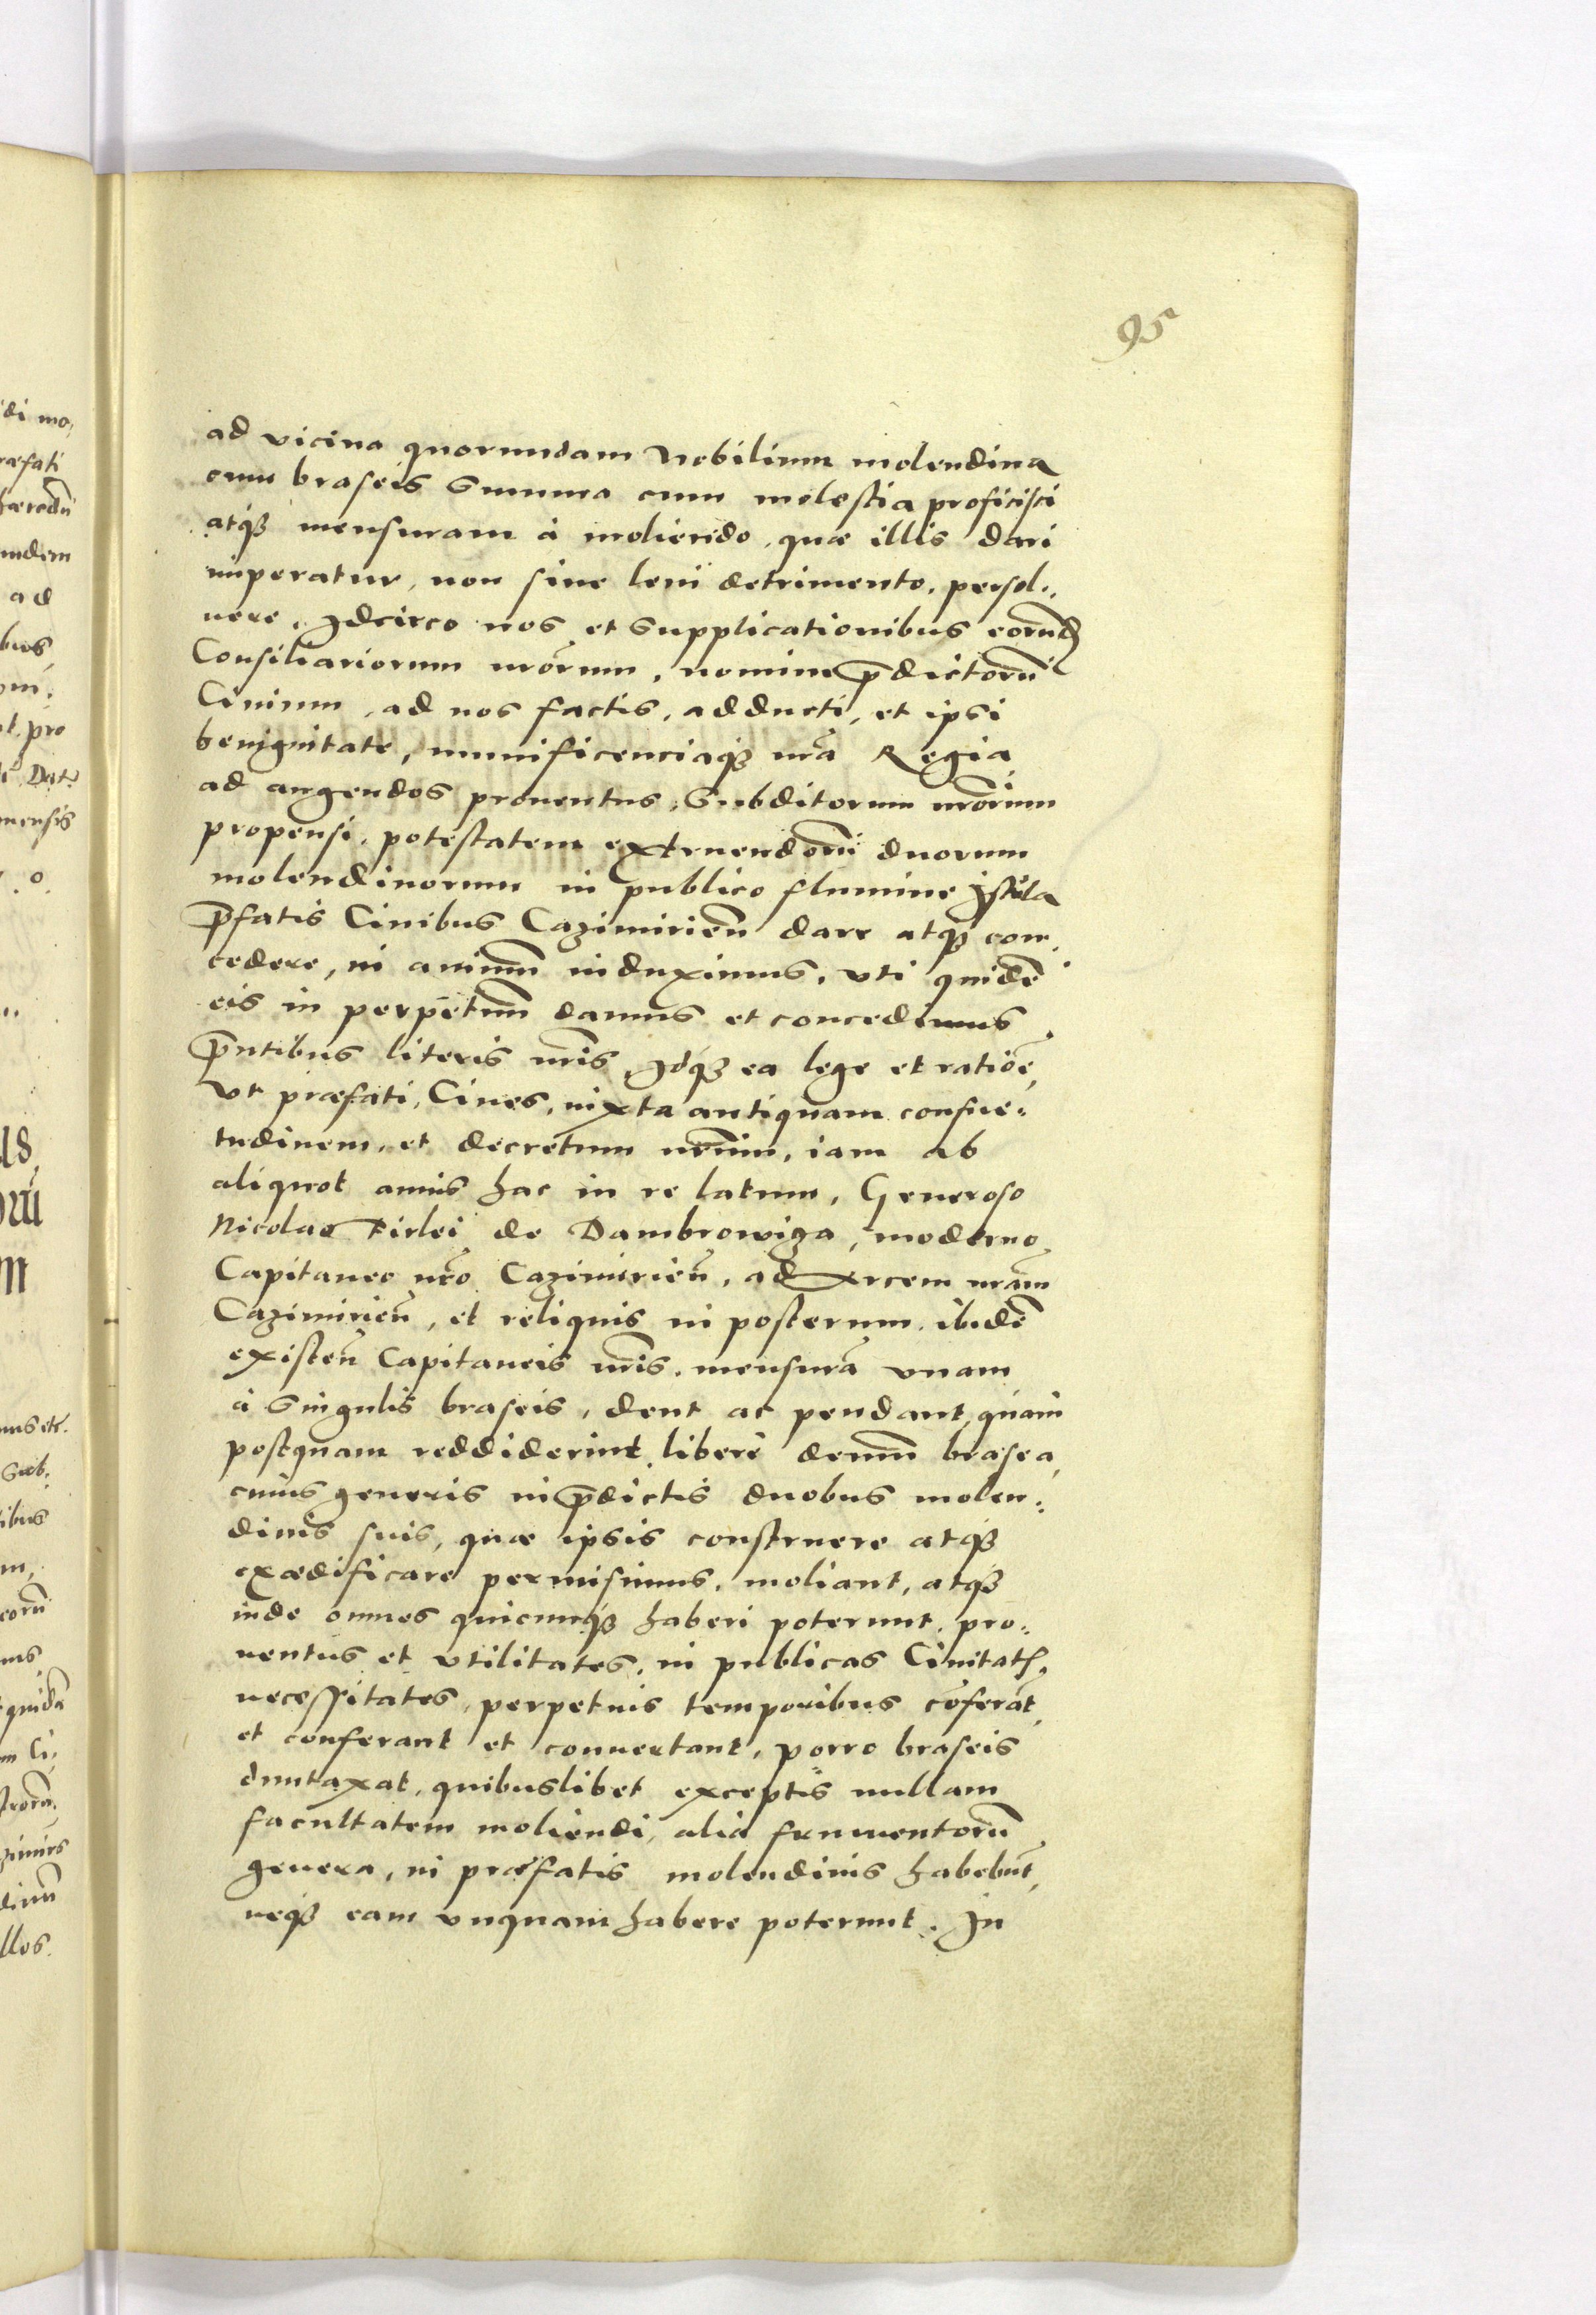 95
ad vicina quorundam Nobilium molendina
cum braseis summa cum molestia proficisci
atqȝ mensuram à moliendo, quæ illis dari
imperatur, non sine leui detrimento, persol-
uere, Idcirco nos et supplicationibus eorundē
Consiliariorum nr̃orum, nomine p̄dictorū
Ciuium, ad nos factis, adducti, et ipsi
benignitate, munificenciaqȝ nr̃a Regia
ad augendos prouentus, Subditorum nr̃orum
propensi, potestatem extruendorū duorum
molendinorum in publico flumine Istula
p̄fatis Ciuibus Cazimirien̄ dare atqȝ con-
cedere, in animū induximus, vti quidē
eis in perpetuū damus et concedimus
p̄ntibus literis nr̃is, Idqȝ ea lege et ratiōe,
vt præfati, Ciues, iuxta antiquam consue-
tudinem, et decretum nr̃um, iam ab
aliquot annis hac in re latum, Generoso
Nicolao Firlei de Dambrowiza, moderno
Capitaneo nr̃o Cazimirien̄, ad Arcem nr̃am
Cazimirien̄, et reliquis in posterum ibidē
existen̄ Capitaneis nr̃is, mensurā vnam
à singulis braseis, dent ac pendant, quàm
postquam reddiderint, liberè demū brasea,
cuius generis in p̄dictis duobus molen-
dinis suis, quæ ipsis construere atqȝ
exædificare permisimus, moliant, atqȝ
inde omnes quicunqȝ haberi poterunt, pro-
uentus et vtilitates, in publicas Ciuitatis
necessitates, perpetuis temporibus cōferāt,
et conferant et conuertant, porro braseis
duntaxat, quibuslibet exceptis nullam
facultatem moliendi, alia frumentorū
genera, in præfatis molendinis habebūt,
neqȝ eam vnquam habere poterunt. In